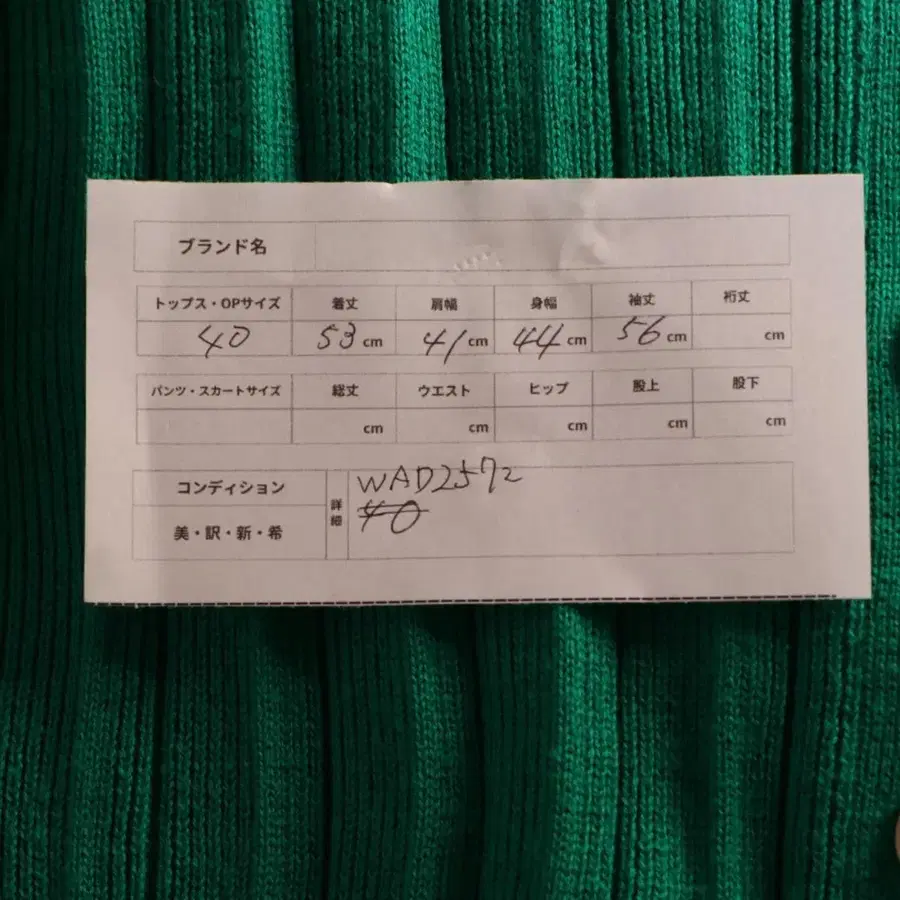 ブランド名
トップス・OPサイズ 着丈 肩幅 身幅 袖丈 裄丈
40 53 cm 41 cm 44 cm 56 cm cm
パンツ・スカートサイズ 総丈 ウエスト ヒップ 股上 股下
cm cm cm cm cm
コンディション 詳細 WAD2572
美・訳・新・希 40